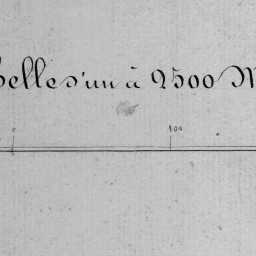 elle d'un à 2500 M
0 100